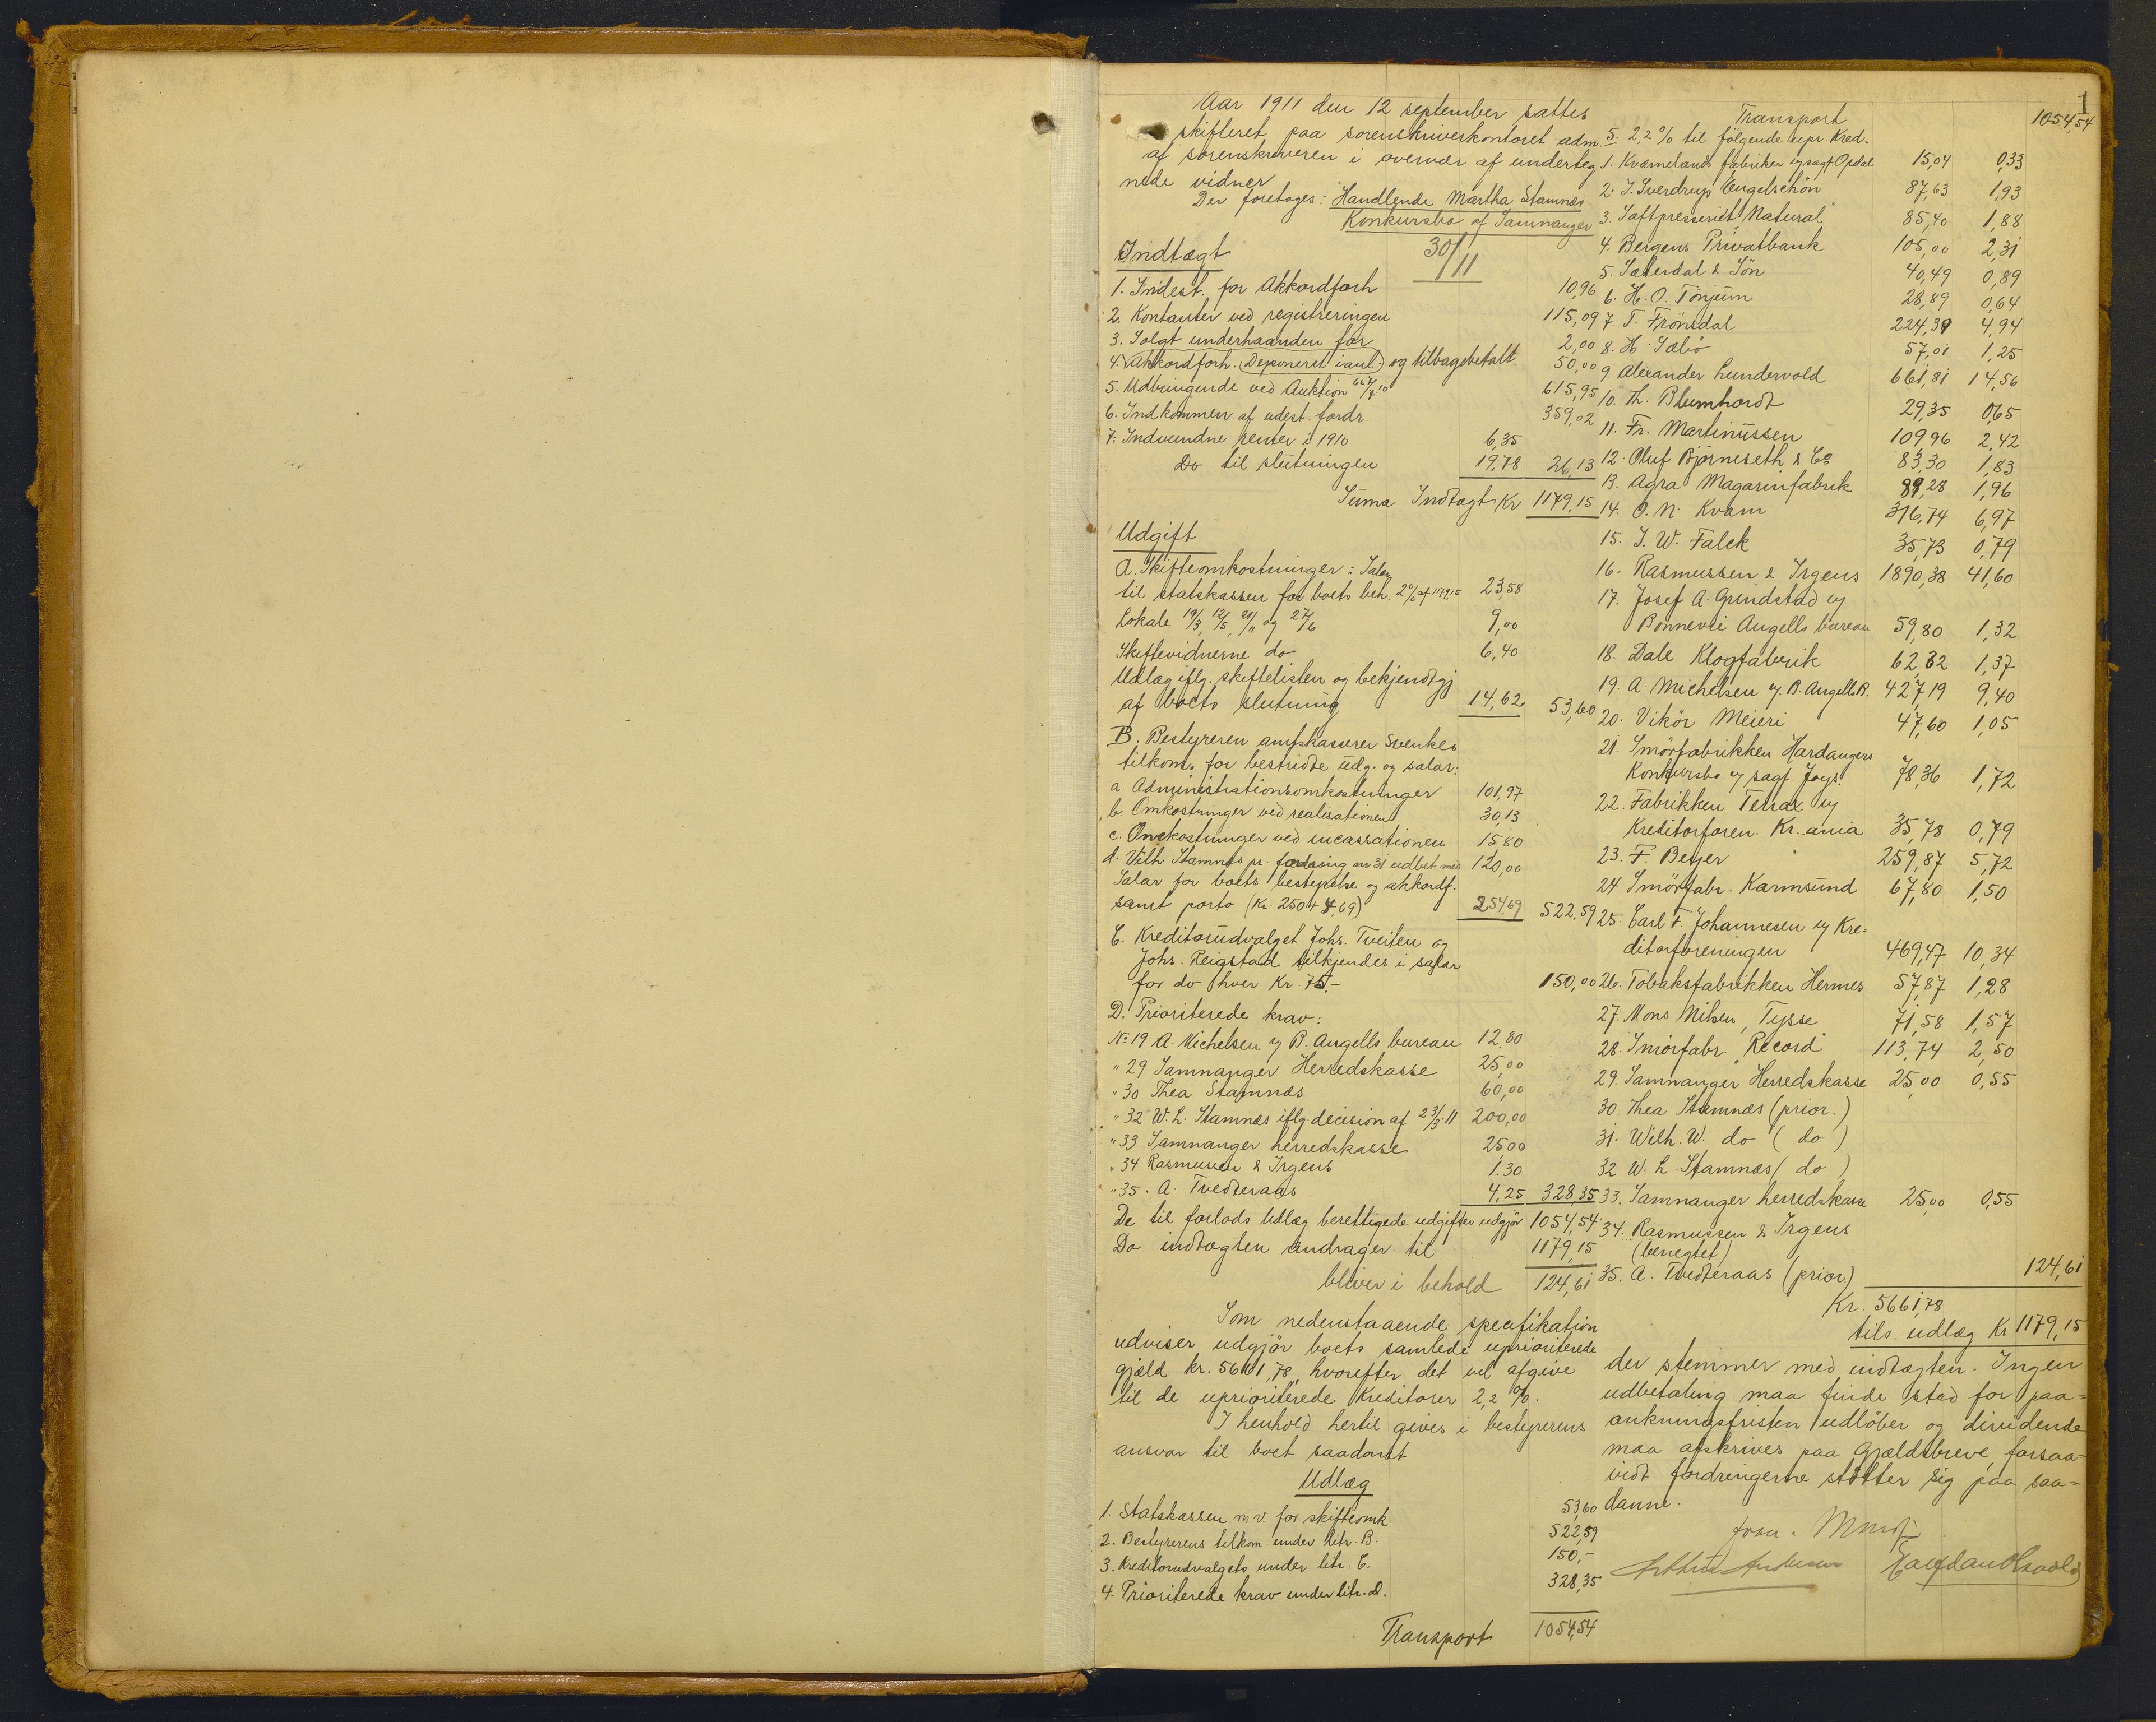 1
Aar 1911 den 12 september sattes
skifteret paa sorenskriverkontoret adm.
af sorenskriveren i overvær af underteg
nede vidner
Der foretoges: Handlende Martha Stamnes
Konkursbo af Samnanger
30/11
Indtægt
1. Indest. for Akkordforh 10,96
2. Kontanter ved registreringen 115,09
3. Solgt underhaanden for 2,00
4. Akkordforh. (Deponeret i aml.) og tilbagebetalt. 50,00
5. Udbringende ved Auktion 615,95
6. Indkommen af udest. fordr. 359,02
7. Indvundne renter i 1910 6,35
Do til slutningen 19,78 26,13
Suma Indtægt Kr 1179,15
Udgift
A. Skifteomkostninger: Salær
til statskassen for boets beh. 2% af 1179.15 23,58
Lokale 19/3, 12/5, 21/11 og 27/6 9,00
Skiftevidnerne do 6,40
Udlæg iflg. skiftelisten og bekjendtgj
af boets slutning 14,62 53,60
B. Bestyreren amtskasserer Svenkes
tilkom. for bestridte udg. og salær:
a. Administrationsomkostninger 101,97
b. Omkostninger ved realisationen 30,13
c. Omkostninger ved incassationen 15,80
d. Vilh Stamnes pr. fordring nr 31 udbet med 120,00
Salær for boets bestyrelse og akkordf.
samt porto (Kr. 250 + 4,69) 254,69 522,59
C. Kreditorudvalget Johs. Tveiten og
Johs. Reigstad tilkjendes i salær
for do hver Kr. 75,- 150,00
D. Prioriterede krav:
No 19 A. Michelsen v/ B. Angells bureau 12,80
" 29 Samnanger Herredskasse 25,00
" 30 Thea Stamnæs 60,00
" 32 W. L. Stamnes iflg. decision af 23/3 11 200,00
" 33 Samnanger herredskasse 25,00
" 34 Rasmussen & Irgens 1,30
" 35. A. Tvedteraas 4,25 328,35
De til forlods Udlæg berettigede udgifter udgjør 1054,54
Da indtægten andrager til 1179,15
bliver i behold 124,61
Som nedenstaaende specifikation
udviser udgjör boets samlede uprioriterede
gjæld kr. 5661,78, hvorefter det vil afgive
til de uprioriterede Kreditorer 2,2 %.
I henhold hertil gives i bestyrerens
ansvar til boet saadant
Udlæg
1. Statskassen m.v. for skifteomk. 53,60
2. Bestyrerens tilkom. under litr. B. 522,59
3. Kreditorudvalgets under litr. C. 150,-
4. Prioriterede krav under litr. D. 328,35
Transport 1054,54
Transport 1054,54
5. 2,2 % til fölgende upr Kred.
1. Kværnelands fabriker v/ sagf. Opdal 15,04 0,33
2. J. Sverdrup Engelschön 87,63 1,93
3. Saftpresseriet "Natural" 85,40 1,88
4. Bergens Privatbank 105,00 2,31
5. Sæterdal & Sön 40,49 0,89
6. H. O. Tönjum 28,89 0,64
7. T. Frönsdal 224,39 4,94
8. H. Sæbö 57,01 1,25
9. Alexander Lundervold 661,81 14,56
10. Th. Blumhardt 29,35 0,65
11. Fr. Martinussen 109,96 2,42
12. Oluf Bjørneseth & Co 83,30 1,83
13. Agra Magarinfabrik 89,28 1,96
14. O. N. Kvam 316,74 6,97
15. J. W. Falck 35,73 0,79
16. Rasmussen & Irgens 1890,38 41,60
17. Josef A. Grindstad v/
Bonnevie Angells bureau 59,80 1,32
18. Dale Klogfabrik 62,32 1,37
19. A. Michelsen v/ B. Angells B. 427,19 9,40
20. Vikör Meieri 47,60 1,05
21. Smörfabrikken Hardangers
Konkursbo v/ sagf. Joys. 78,36 1,72
22. Fabrikken Terrax v/
Kreditorforen. Kr.ania 35,78 0,79
23. F. Beyer 259,87 5,72
24 Smörfabr. Karmsund 67,80 1,50
25. Carl F. Johannesen v/ Kre-
ditorforeningen 469,47 10,34
26. Tobaksfabrikken Hermes 57,87 1,28
27. Mons Nilsen, Tysse 71,58 1,57
28. Smörfabr. "Record" 113,74 2,50
29. Samnanger Herredskasse 25,00 0,55
30. Thea Stamnæs (prior.)
31. Wilh. W. do (do)
32 W. L. Stamnæs (do)
33. Samnanger herredskasse 25,00 0,55
34. Rasmussen & Irgens
(benegtet)
35. A. Tvedteraas (prior) 124,61
Kr. 5661,78
tils. udlæg Kr 1179,15
der stemmer med indtægten. Ingen
udbetaling maa finde sted for paa-
ankningsfristen udlöber og dividende
maa afskrives paa Gjældsbreve, forsaa-
vidt fordringerne stötter sig paa saa-
danne.
Arthur Andersen